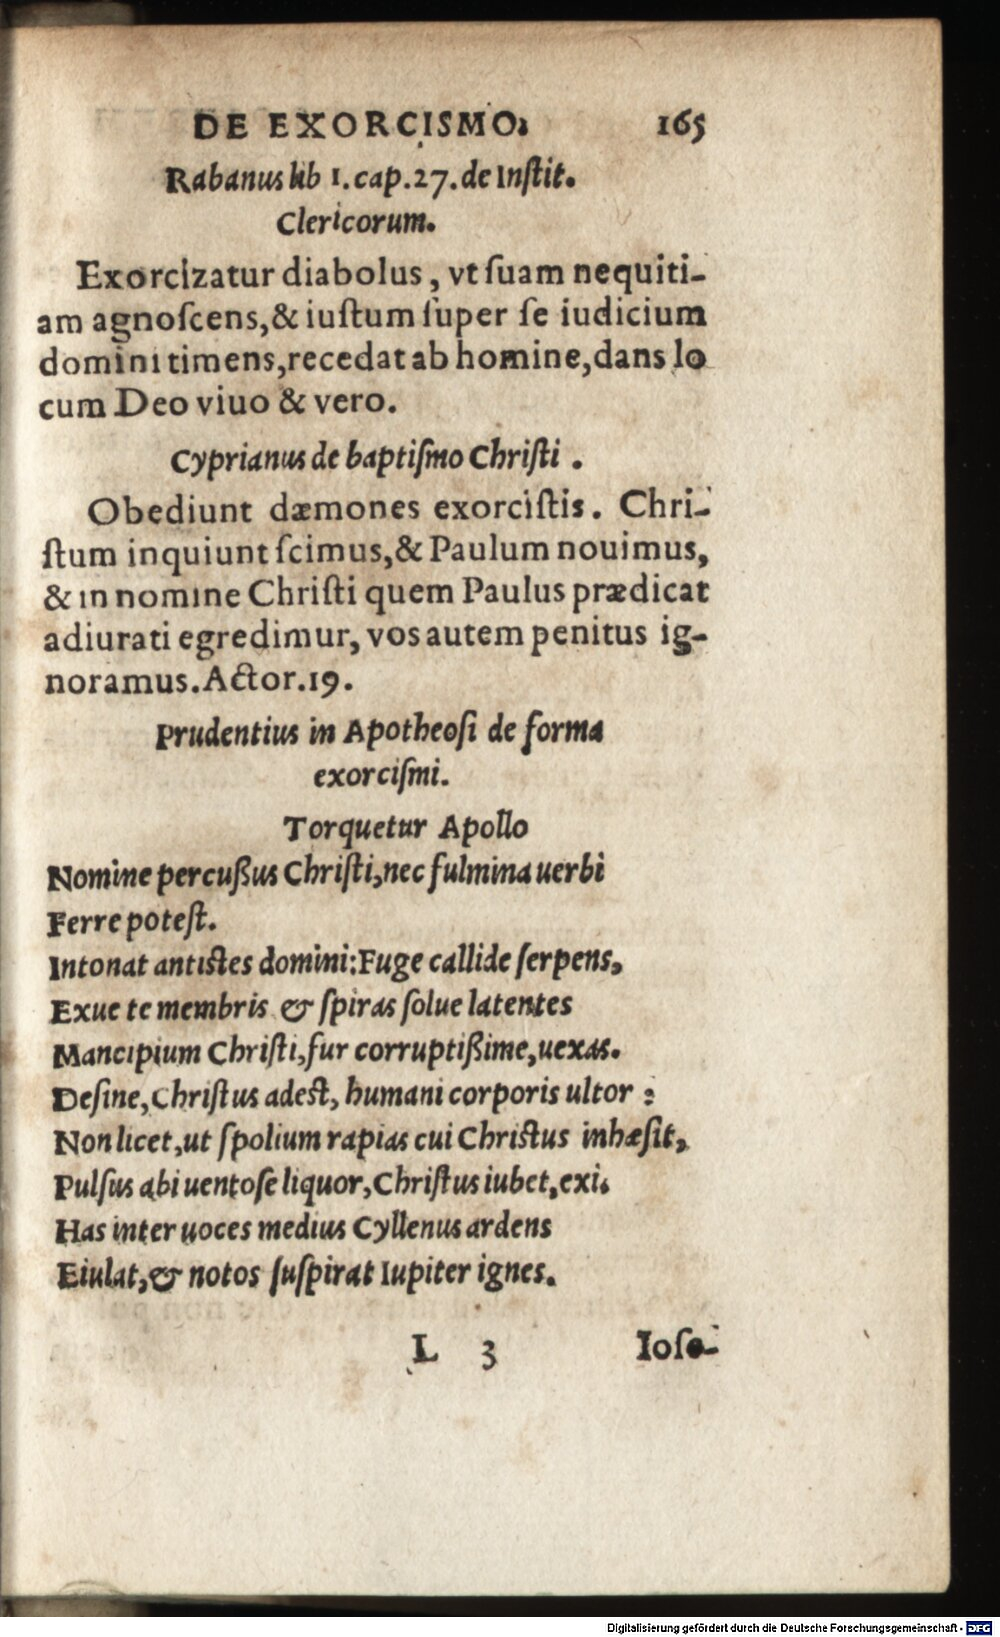 DE EXORCISMO. 165
Rabanus lib 1. cap. 27. de Instit.
Clericorum.
Exorcizatur diabolus, vt ſuam nequiti-
am agnoſcens, & iuſtum ſuper ſe iudicium
domini timens, recedat ab homine, dans lo
cum Deo viuo & vero.
Cyprianus de baptiſmo Chriſti.
Obediunt dæmones exorciſtis. Chri-
ſtum inquiunt ſcimus, & Paulum nouimus,
& in nomine Chriſti quem Paulus prædicat
adiurati egredimur, vos autem penitus ig-
noramus. Actor. 19.
Prudentius in Apotheoſi de forma
exorciſmi.
Torquetur Apollo
Nomine percußus Chriſti, nec fulmina uerbi
Ferre poteſt.
Intonat antiſtes domini: Fuge callide ſerpens,
Exue te membris & ſpiras ſolue latentes
Mancipium Chriſti, fur corruptißime, uexas.
Deſine, Chriſtus adeſt, humani corporis ultor:
Non licet, ut ſpolium rapias cui Chriſtus inhæſit,
Pulſus abi uentoſe liquor, Chriſtus iubet, exi.
Has inter uoces medius Cyllenus ardens
Eiulat, & notos ſuſpirat Iupiter ignes.
L 3 Ioſe-
Digitalisierung gefördert durch die Deutsche Forschungsgemeinschaft - DFG